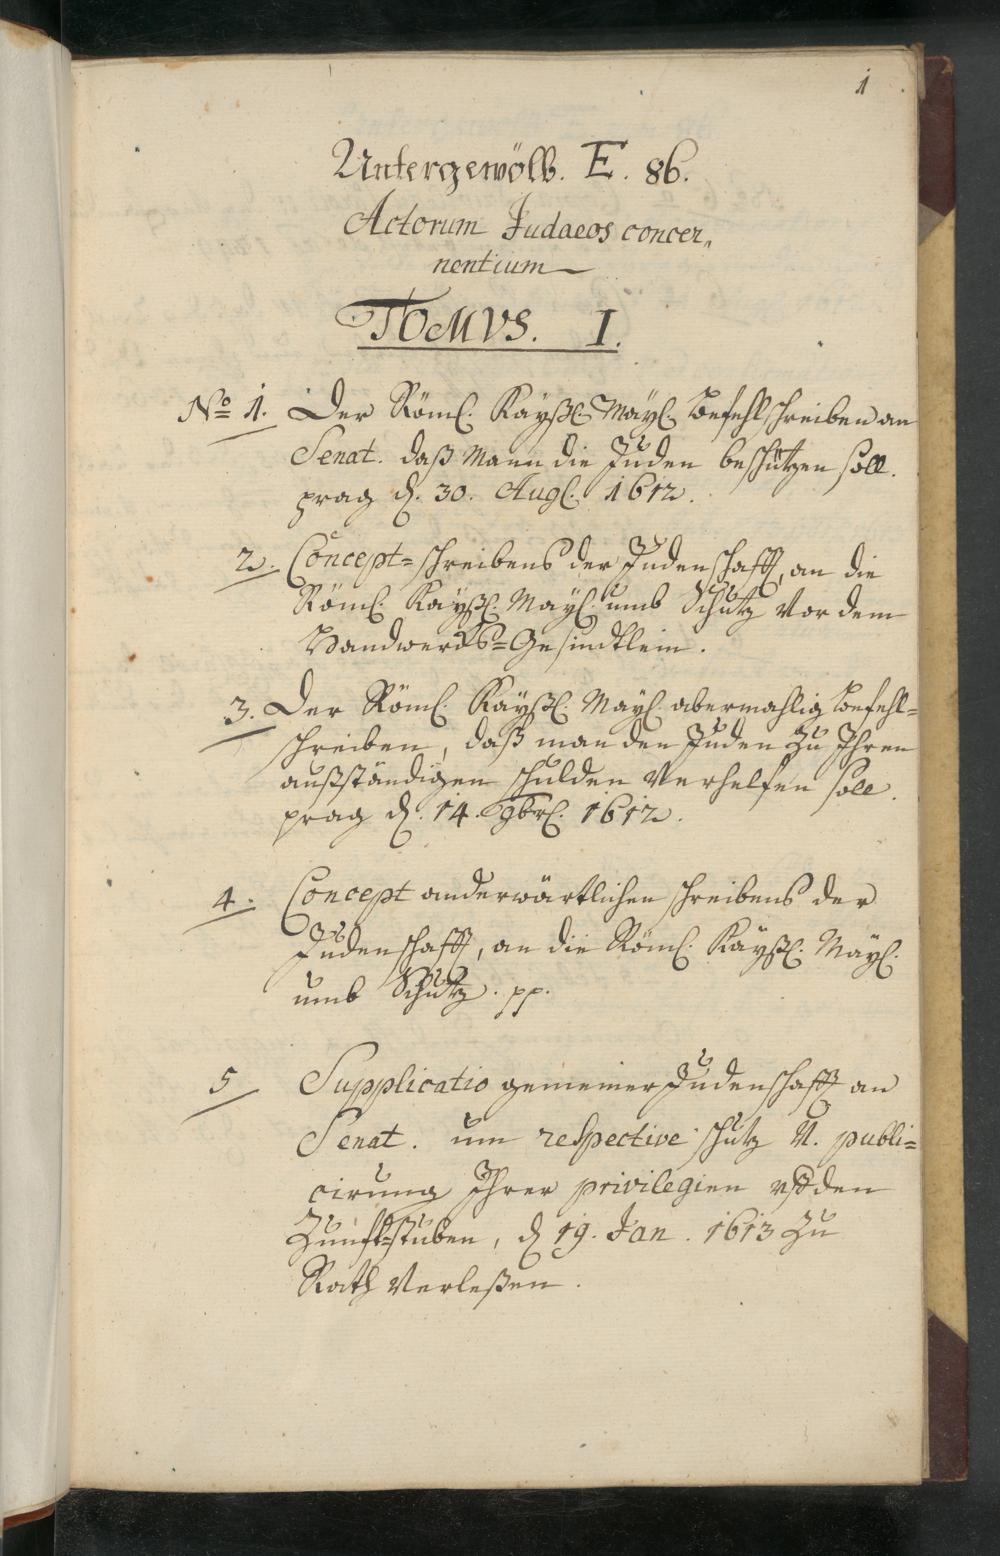 1
Untergewölb. E. 86.
Actorum Judaeos concer„
nentium
TOMVS. I.
No 1. Der Röml. Kayßl. Mayl. Befehlschreiben an
Senat. daß Mann die Juden beschützen soll.
prag d. 30. Augl. 1612.
2. Concept=schreibens der Judenschafft, an die
Röml. Kayßl. Mayl. umb Schutz vor dem
Handwercks=Gesindtlein.
3. Der Röml. Kayßl. Mayl. abermahlig Befehl=
schreiben, daß man den Juden zu Ihren
außständigen schulden Verhelfen soll.
prag d. 14. 9brl. 1612.
4. Concept anderwärtlichen schreibens der
Judenschafft, an die Röml. Kayßl. Mayl.
umb Schutz. pp.
5 Supplicatio gemeiner Judenschafft an
Senat. um respective schutz u. publi=
cirung Ihrer privilegien den
Zunfftstuben, d 19. Jan. 1613 zu
Rath Verleßen.